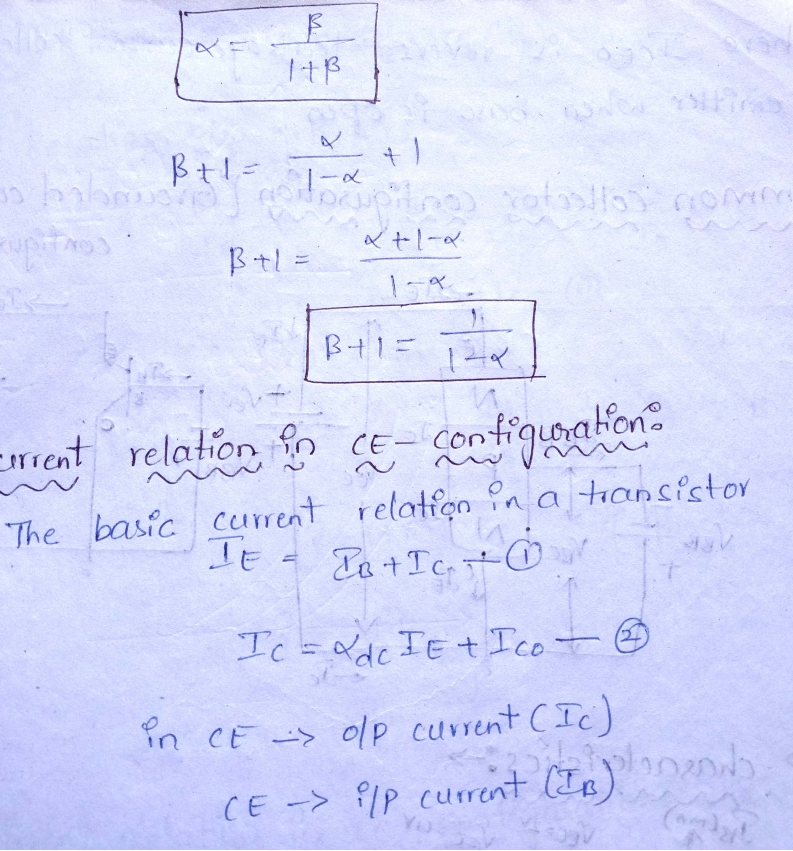 α = β / 1+β
β+1 = α / 1-α + 1
β+1 = α+1-α / 1-α
β+1 = 1 / 1-α
urrent relation in CE- configuration:
The basic current relation in a transistor
IE = IB + IC — ①
IC = αdc IE + ICO — ②
in CE -> o/p current (IC)
CE -> i/p current (IB)